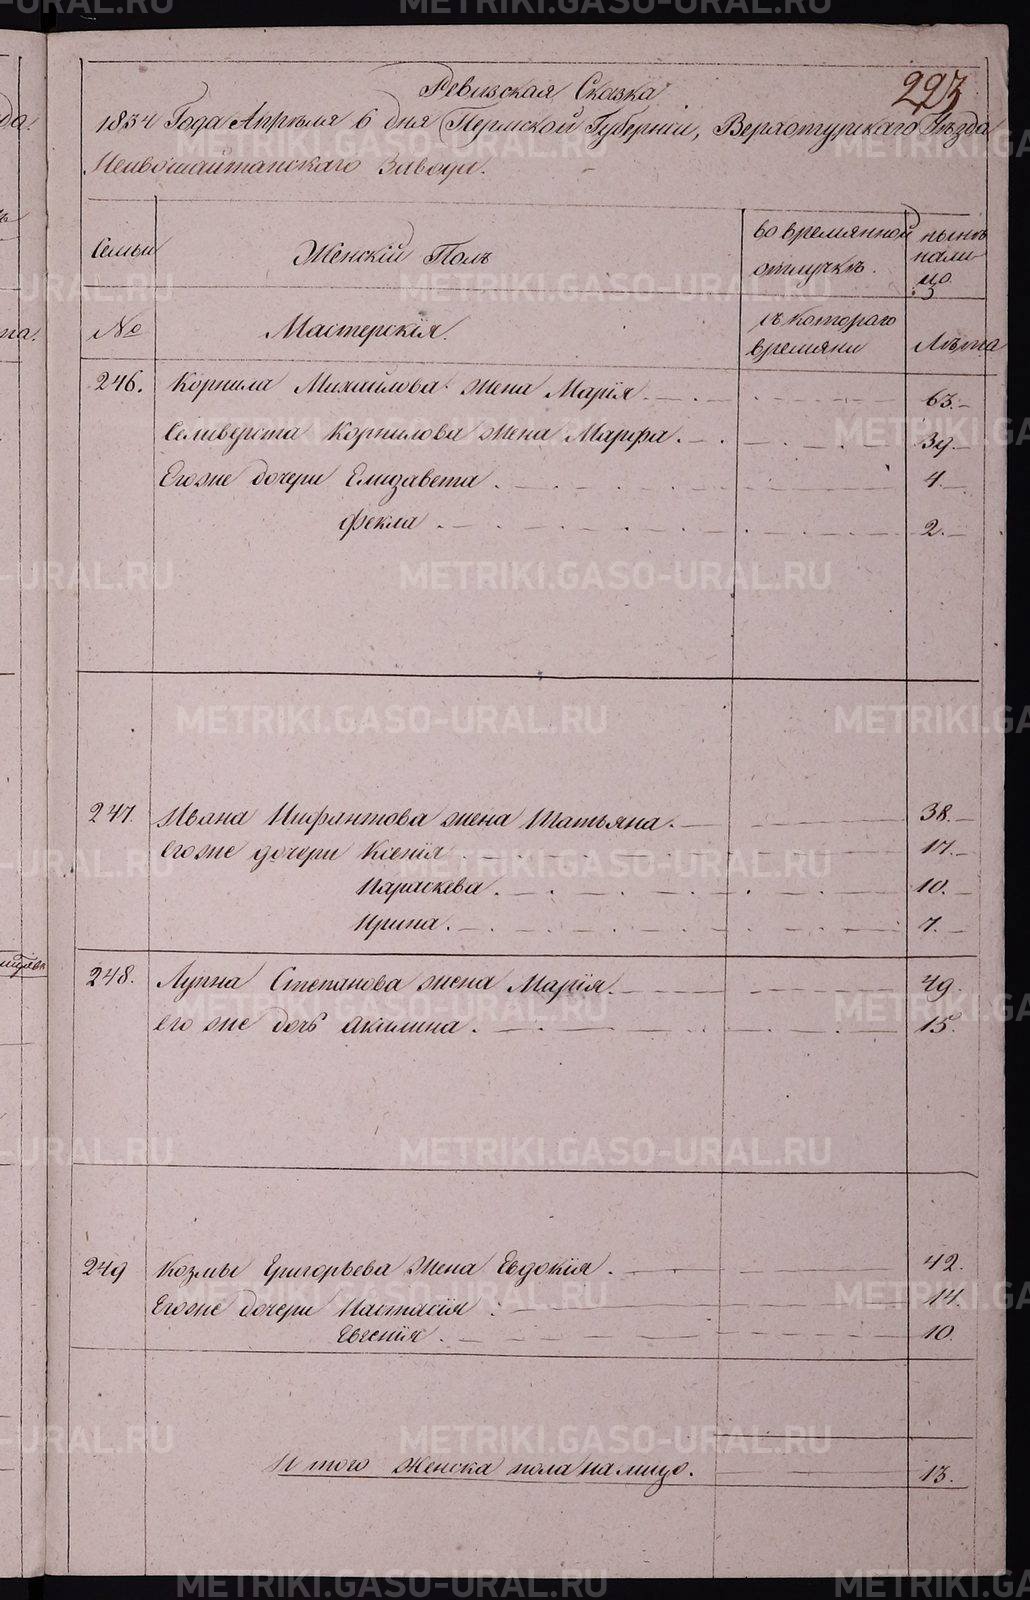 223
Ревизская Сказка
1834 Года Апреля 6 дня Пермской Губернии, Верхотурскаго Уезда
Нейвошайтанскаго Завода.
Семьи
Женскій Полъ
во времянной отлучкѣ.
нынѣ на лицо
№
Мастерскія.
съ котораго времяни
Лѣта
246. Корнила Михайлова жена Марія. 63.
Селиверста Корнилова жена Марфа. 39.
Егоже дочери Елизавета. 4.
Фекла. 2.
247. Ивана Нифантова жена Татьяна. 38.
Егоже дочери Ксенія. 17.
Параскева. 10.
Ирина. 7.
248. Луппа Степанова жена Марія. 49.
его же дочь акилина. 15.
249 Козмы Григорьева жена Евдокія. 42.
Егоже дочери Настасія. 14.
Евгенія. 10.
Итого женска пола на лицо. 13.
METRIKI.GASO-URAL.RU